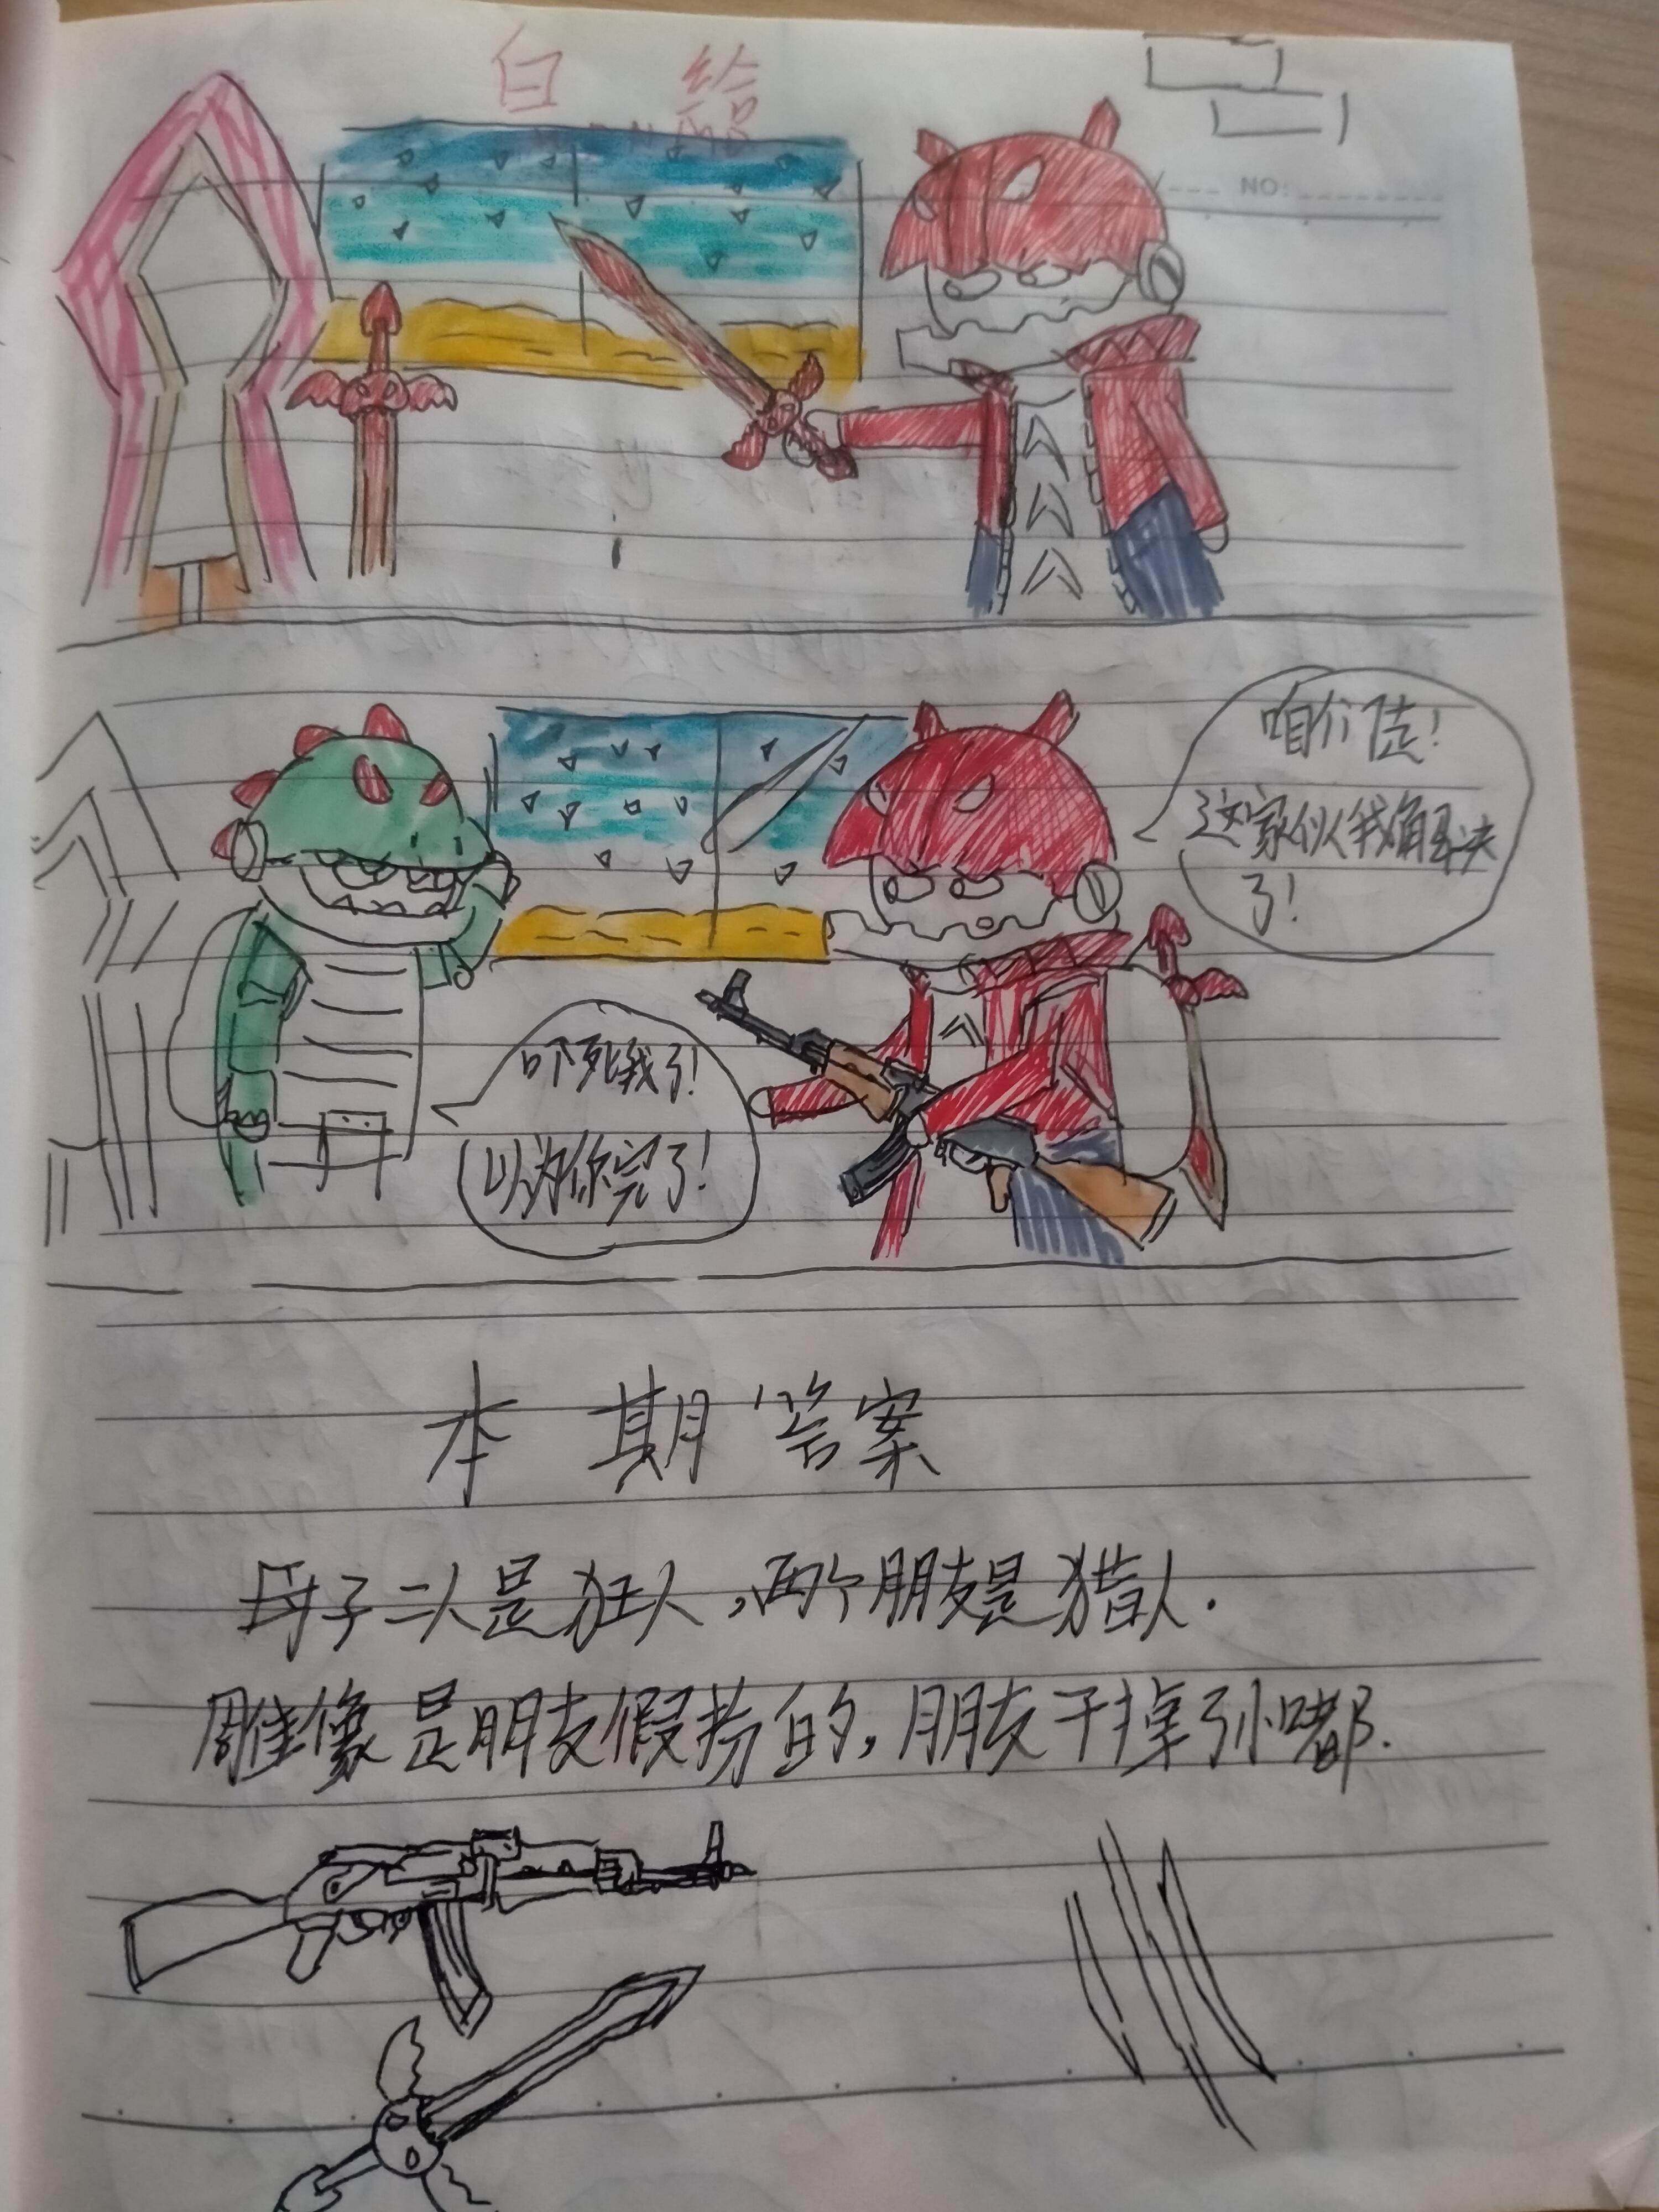 白 给
NO:
咱们走!
这家伙我解决
了!
吓死我了!
以为你完了!
本期答案
母子二人是狂人,两个朋友是猎人.
雕像是朋友假扮的,朋友干掉孙嘟.